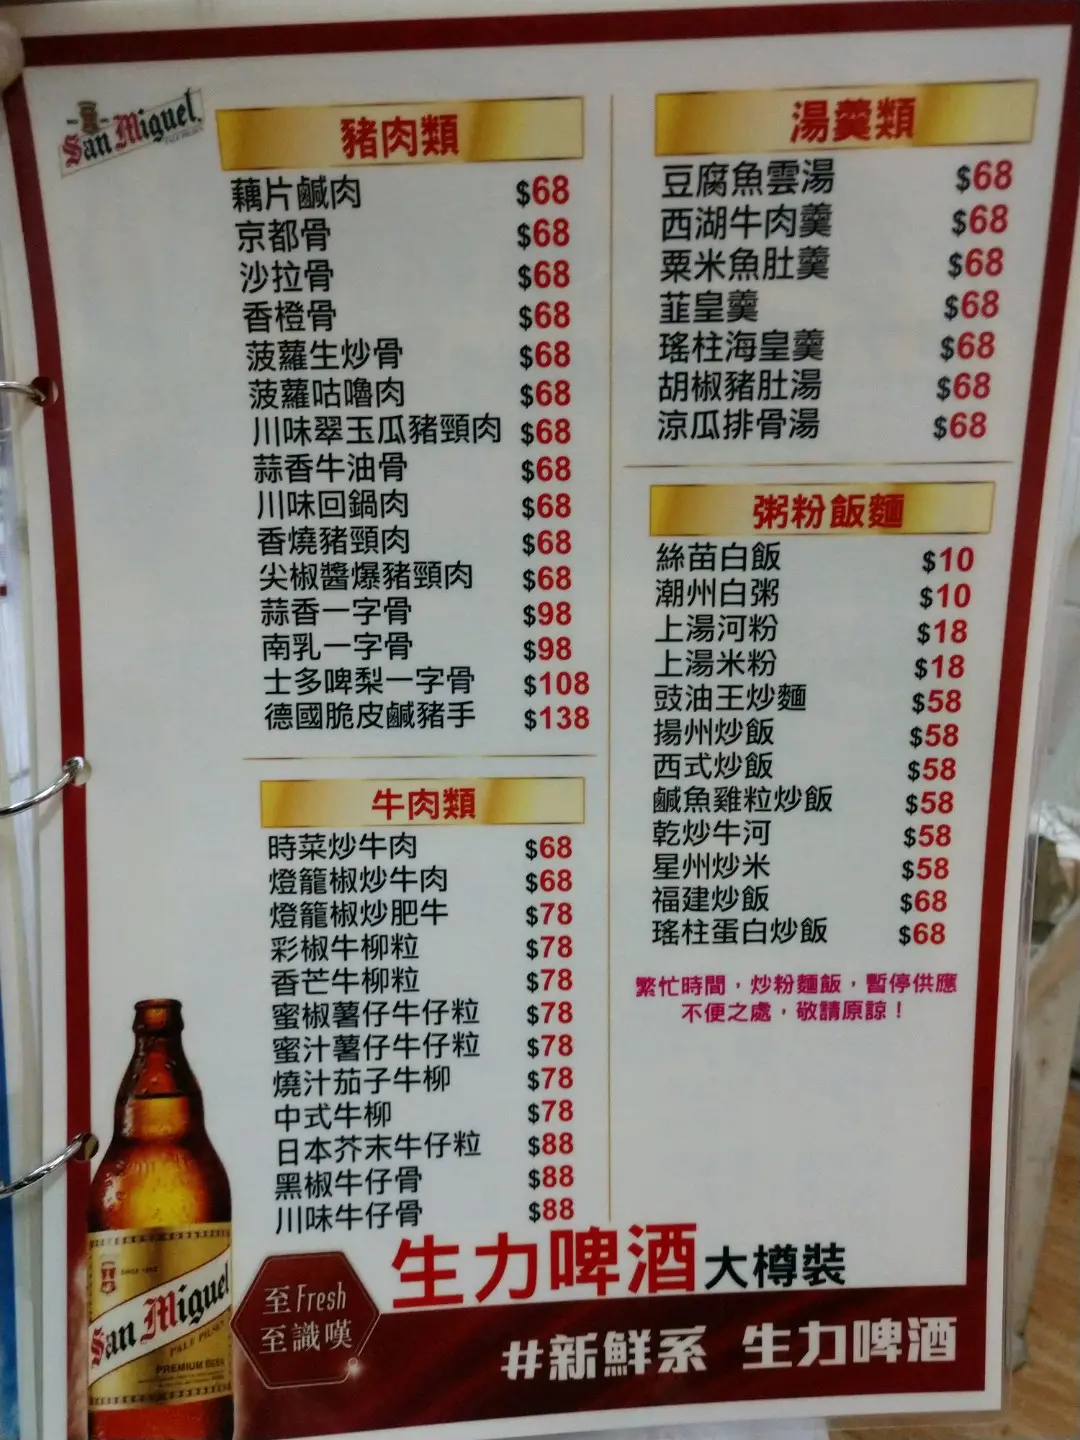 San Miguel
豬肉類
藕片鹹肉 $68
京都骨 $68
沙拉骨 $68
香橙骨 $68
菠蘿生炒骨 $68
菠蘿咕嚕肉 $68
川味翠玉瓜豬頸肉 $68
蒜香牛油骨 $68
川味回鍋肉 $68
香燒豬頸肉 $68
尖椒醬爆豬頸肉 $68
蒜香一字骨 $98
南乳一字骨 $98
士多啤梨一字骨 $108
德國脆皮鹹豬手 $138
牛肉類
時菜炒牛肉 $68
燈籠椒炒牛肉 $68
燈籠椒炒肥牛 $78
彩椒牛柳粒 $78
香芒牛柳粒 $78
蜜椒薯仔牛仔粒 $78
蜜汁薯仔牛仔粒 $78
燒汁茄子牛柳 $78
中式牛柳 $78
日本芥末牛仔粒 $88
黑椒牛仔骨 $88
川味牛仔骨 $88
湯羹類
豆腐魚雲湯 $68
西湖牛肉羹 $68
粟米魚肚羹 $68
韮皇羹 $68
瑤柱海皇羹 $68
胡椒豬肚湯 $68
涼瓜排骨湯 $68
粥粉飯麵
絲苗白飯 $10
潮州白粥 $10
上湯河粉 $18
上湯米粉 $18
豉油王炒麵 $58
揚州炒飯 $58
西式炒飯 $58
鹹魚雞粒炒飯 $58
乾炒牛河 $58
星州炒米 $58
福建炒飯 $68
瑤柱蛋白炒飯 $68
繁忙時間，炒粉麵飯，暫停供應
不便之處，敬請原諒！
生力啤酒大樽裝
至Fresh
至識嘆
#新鮮系 生力啤酒
San Miguel
PALE PILSEN
PREMIUM BEER